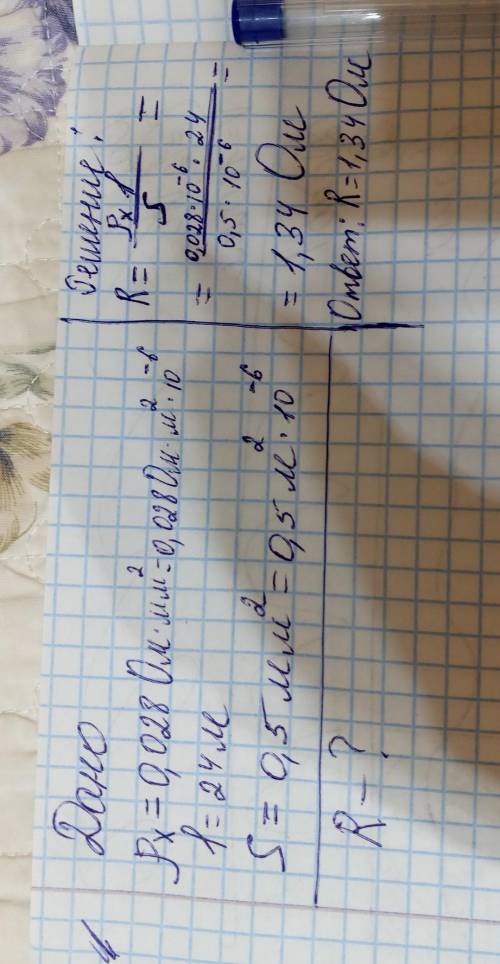 4
Дано
ρₓ = 0,028 Ом·мм² = 0,028 Ом·м²·10⁻⁶
l = 24 м
S = 0,5 мм² = 0,5 м²·10⁻⁶
R - ?
Решение:
R = ρₓ l / S =
= 0,028·10⁻⁶·24 / 0,5·10⁻⁶ =
= 1,34 Ом
Ответ: R = 1,34 Ом